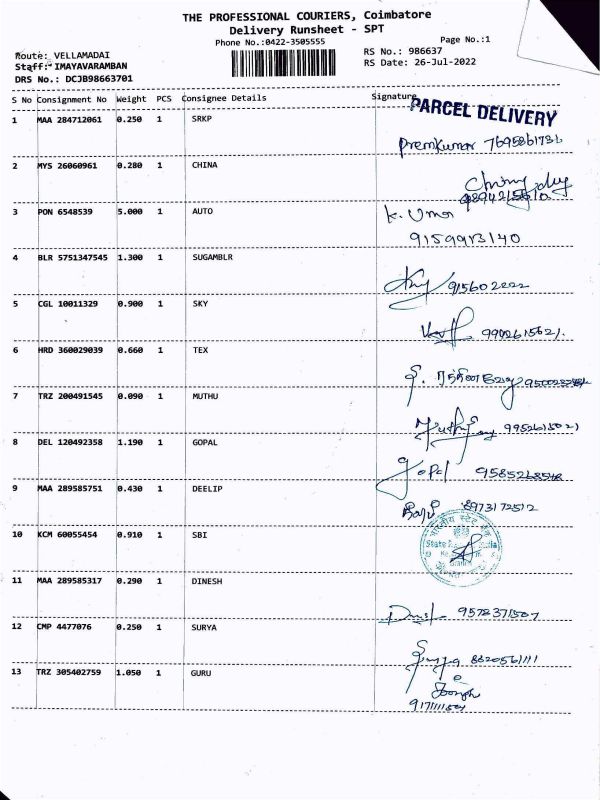 THE PROFESSIONAL COURIERS, Coimbatore
Delivery Runsheet - SPT
Phone No.:0422-3505555
Page No.:1
Route: VELLAMADAI
RS No.: 986637
Staff: IMAYAVARAMBAN
RS Date: 26-Jul-2022
DRS No.: DCJB98663701
S No Consignment No Weight PCS Consignee Details Signature
PARCEL DELIVERY
1 MAA 284712061 0.250 1 SRKP
Premkumar 7695861731
2 MYS 26060961 0.280 1 CHINA
3 PON 6548539 5.000 1 AUTO
K. Uma
9159913140
4 BLR 5751347545 1.300 1 SUGAMBLR
915602222
5 CGL 10011329 0.900 1 SKY
6 HRD 360029039 0.660 1 TEX
7 TRZ 200491545 0.090 1 MUTHU
8 DEL 120492358 1.190 1 GOPAL
Gopal
9 MAA 289585751 0.430 1 DEELIP
8973172512
10 KCM 60055454 0.910 1 SBI
भारतीय स्टेट बैंक
State India
11 MAA 289585317 0.290 1 DINESH
9578371507
12 CMP 4477076 0.250 1 SURYA
8820561111
13 TRZ 305402759 1.050 1 GURU